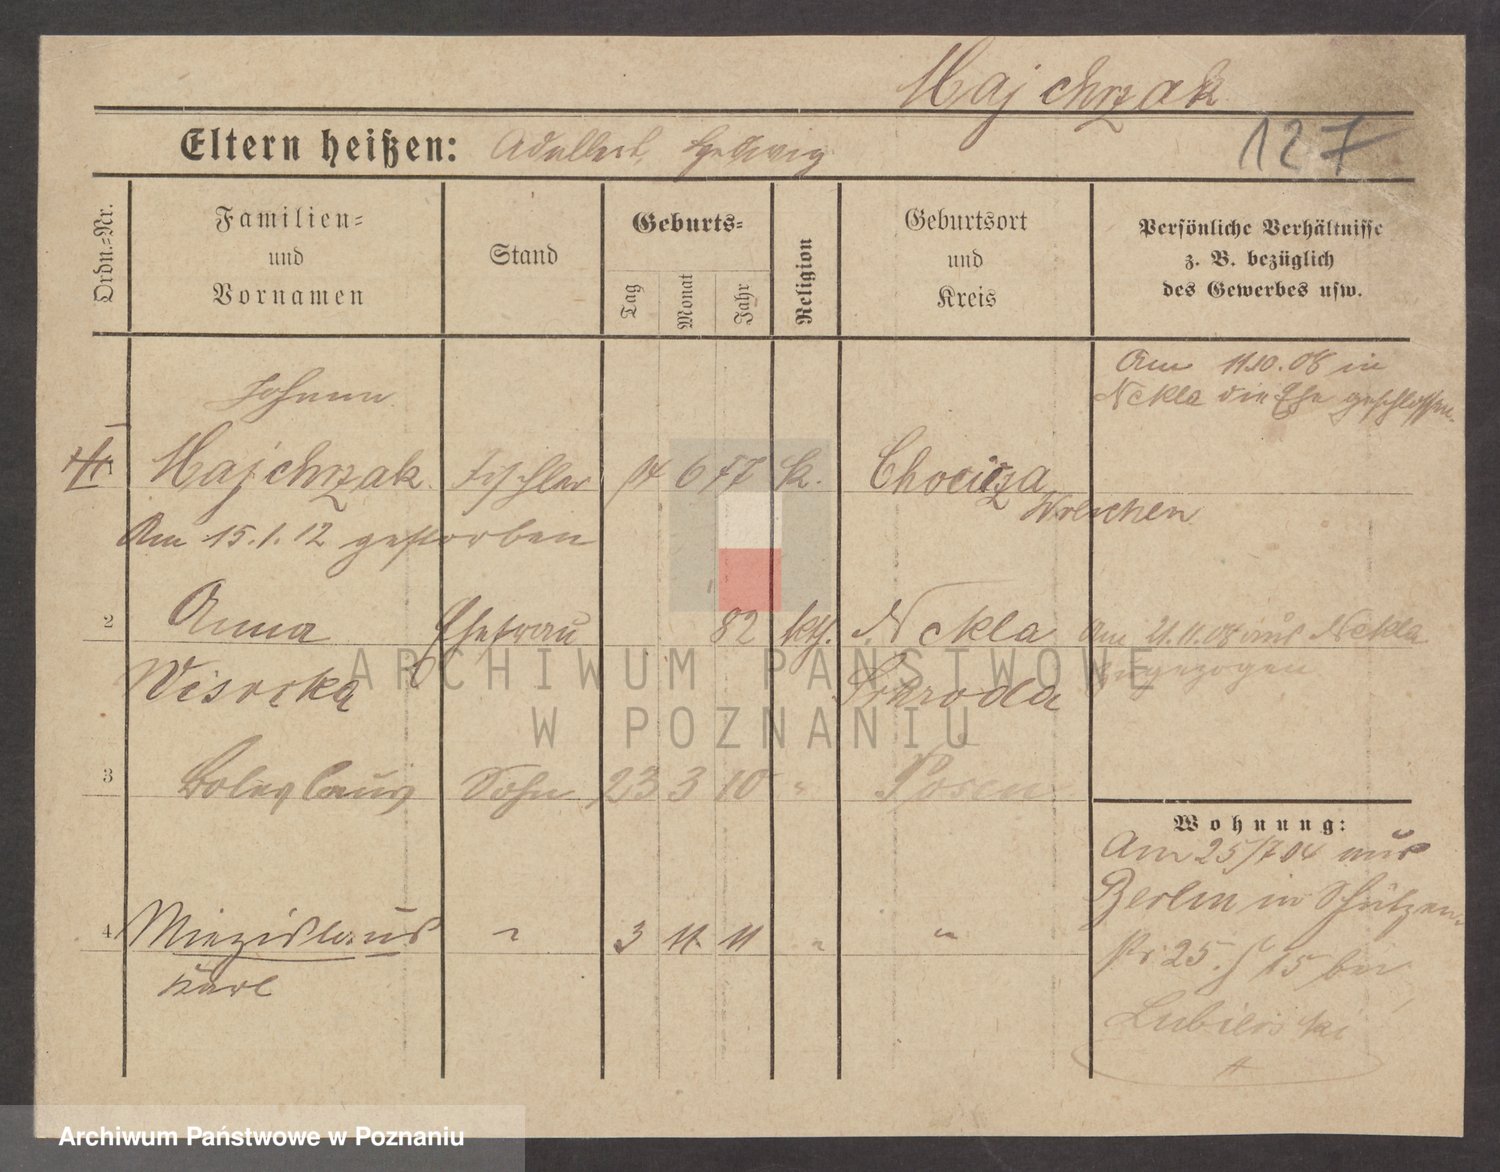 Majchrzak
Eltern heißen: Adalbert, Hedwig
127
Ordn.=Nr.
Familien=
und
Vornamen
Stand
Geburts=
Tag
Monat
Jahr
Religion
Geburtsort
und
Kreis
Persönliche Verhältnisse
z. B. bezüglich
des Gewerbes usw.
Am 11.10.08 in
Nekla die Ehe geschlossen
Johann
1 Majchrzak Tischler 14 6 77 k. Chocicza
Wreschen
Am 15.1.12 gestorben
2 Anna Ehefrau 82 kth. Nekla Am 21.11.08 aus Nekla
Wisocka Schroda zugezogen
3 Boleslaus Sohn 23 3 10 " Posen
Wohnung:
Am 25/7 04 aus
Berlin in Schützen-
4 Miezislaus " 3 11. 11 " "
Karl
str 25. 15 bei
Lubierski
ARCHIWUM PAŃSTWOWE
W POZNANIU
Archiwum Państwowe w Poznaniu